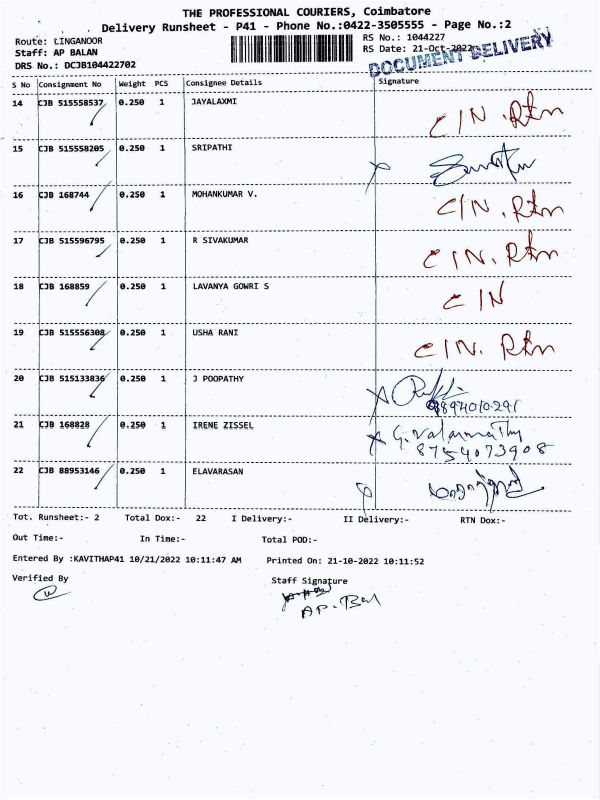 THE PROFESSIONAL COURIERS, Coimbatore
Delivery Runsheet - P41 - Phone No.:0422-3505555 - Page No.:2
Route: LINGANOOR
RS No.: 1044227
Staff: AP BALAN
RS Date: 21-Oct-2022
DRS No.: DCJB104422702
DOCUMENT DELIVERY
S No Consignment No Weight PCS Consignee Details Signature
14 CJB 515558537 0.250 1 JAYALAXMI C/N. Rtn
15 CJB 515558205 0.250 1 SRIPATHI
16 CJB 168744 0.250 1 MOHANKUMAR V. C/N. Rtn
17 CJB 515596795 0.250 1 R SIVAKUMAR C/N. Rtn
18 CJB 168859 0.250 1 LAVANYA GOWRI S C/N
19 CJB 515556308 0.250 1 USHA RANI C/N. Rtn
20 CJB 515133836 0.250 1 J POOPATHY
21 CJB 168828 0.250 1 IRENE ZISSEL G. Valarmathy
8754073908
22 CJB 88953146 0.250 1 ELAVARASAN
Tot. Runsheet:- 2 Total Dox:- 22 I Delivery:- II Delivery:- RTN Dox:-
Out Time:- In Time:- Total POD:-
Entered By :KAVITHAP41 10/21/2022 10:11:47 AM Printed On: 21-10-2022 10:11:52
Verified By Staff Signature
AP. Bal